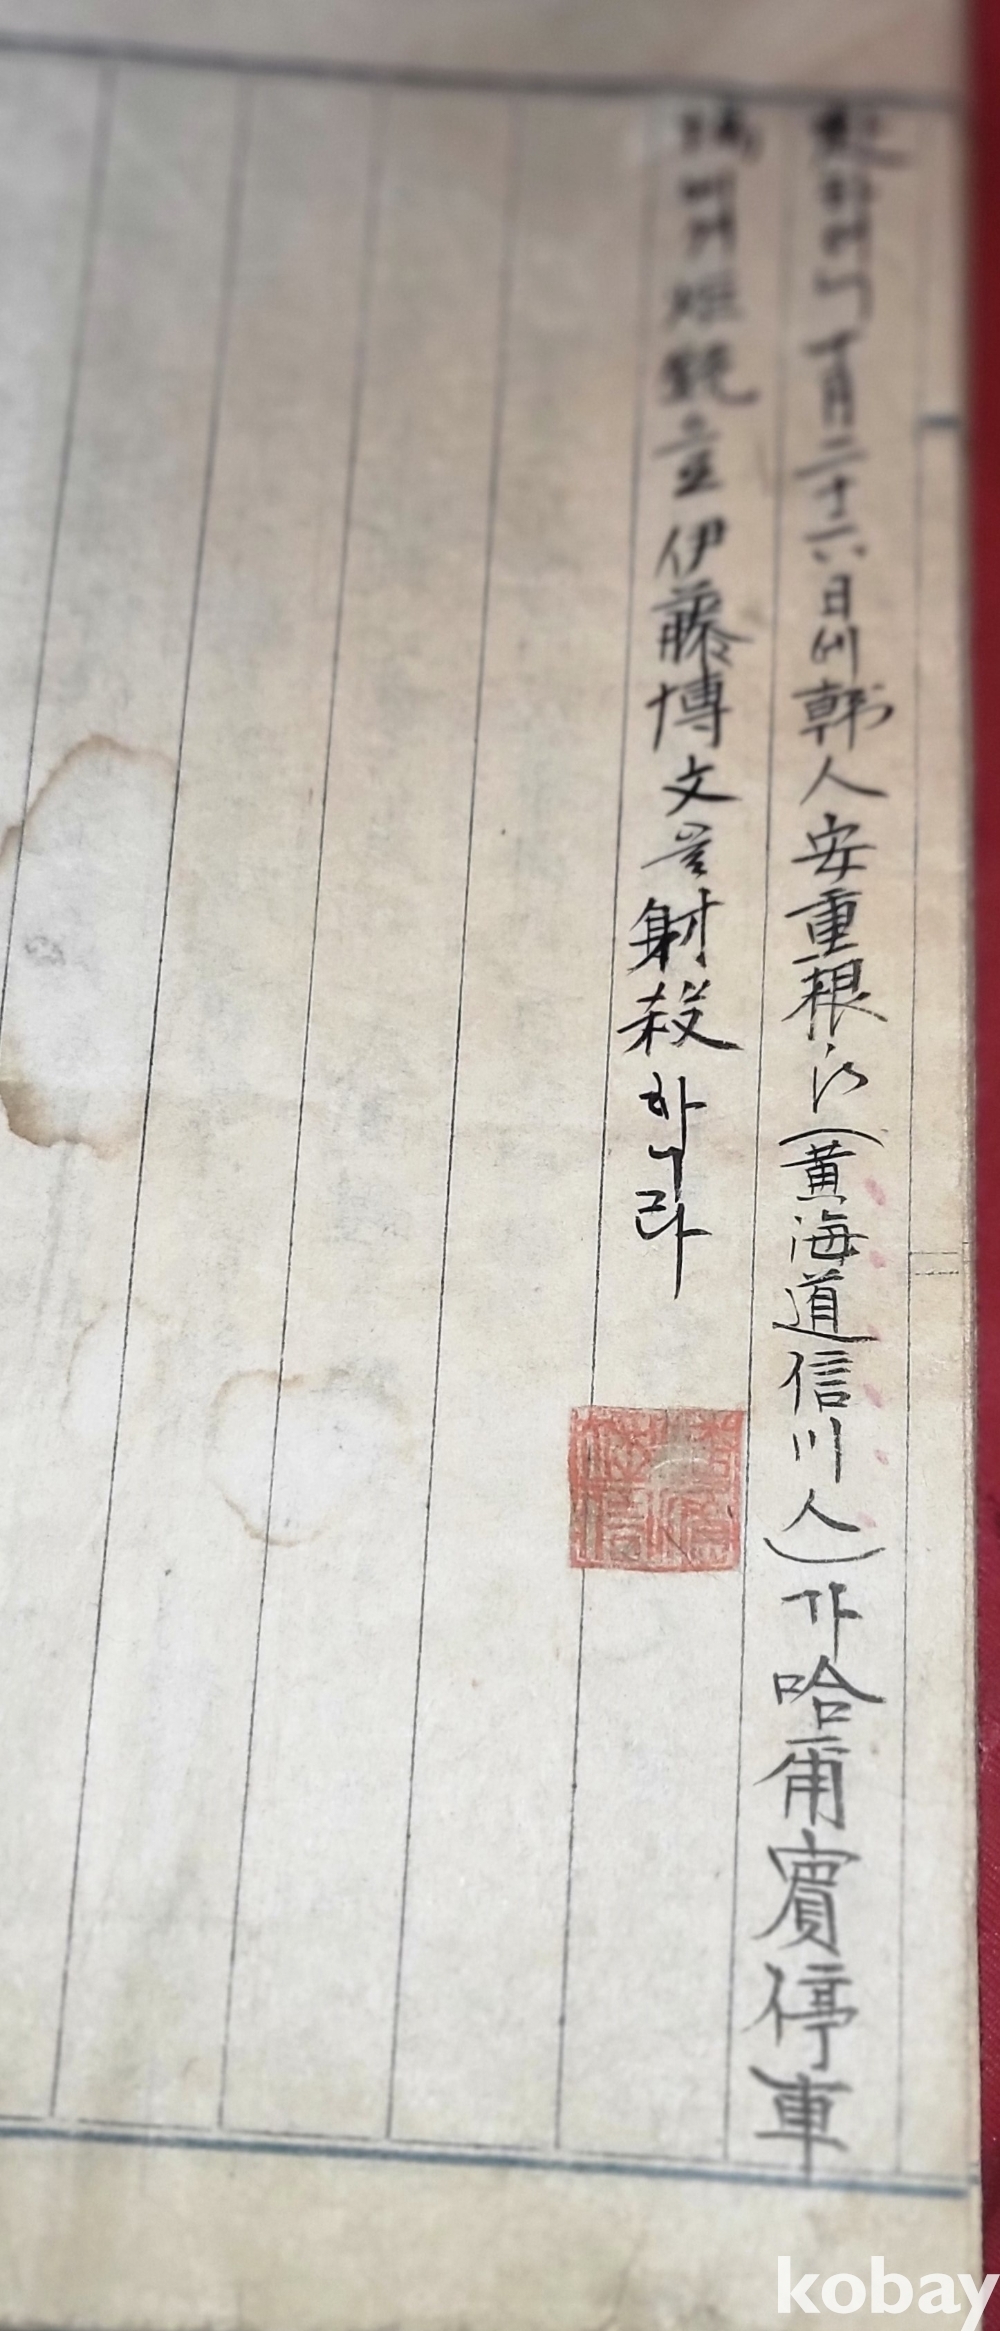 十月二十六日에 韓人安重根氏(黃海道信川人)가 哈甭賓停車
로 伊藤博文을 射殺하니라
kobay